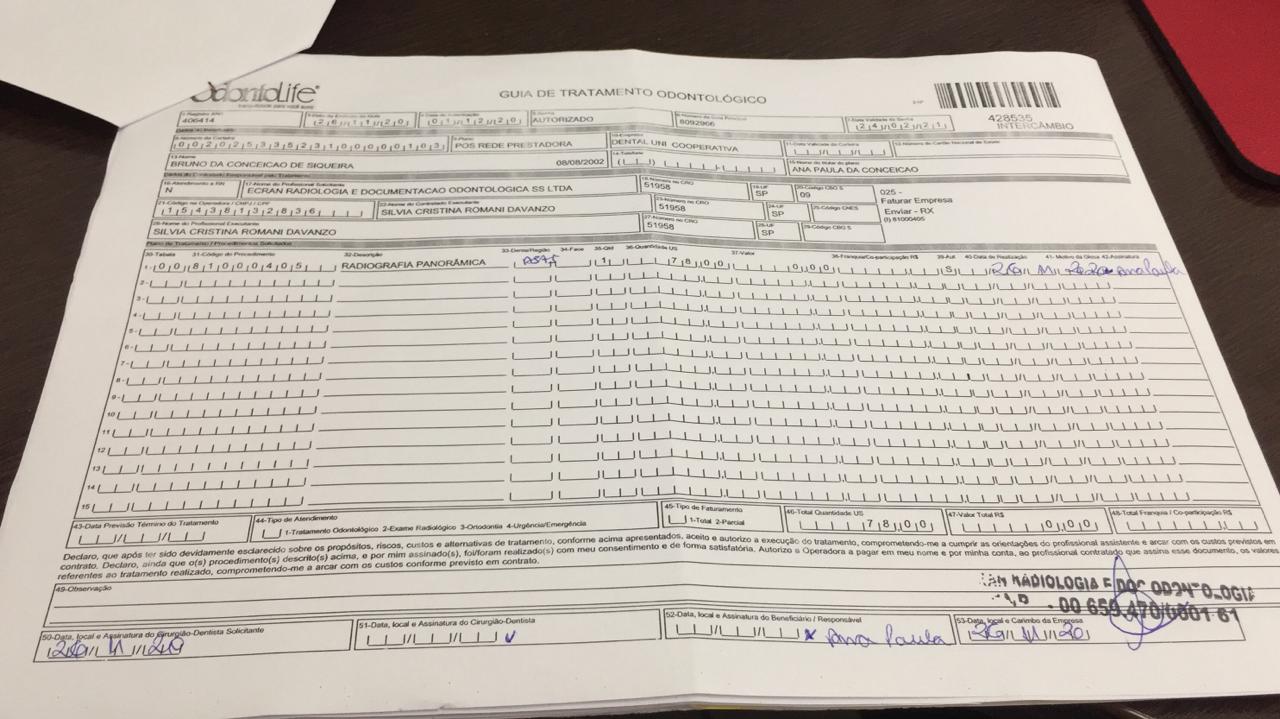 OdontoLife
GUIA DE TRATAMENTO ODONTOLÓGICO
428535
INTERCÂMBIO
1-Registro ANS
406414
26/11/20
01/12/20
5-Senha
AUTORIZADO
8092966
24/02/21
8-Número da Carteira
00202533523100000103
9-Plano
POS REDE PRESTADORA
10-Empresa
DENTAL UNI COOPERATIVA
11-Data Validade da Carteira
12-Número do Cartão Nacional de Saúde
13-Nome
BRUNO DA CONCEICAO DE SIQUEIRA 08/08/2002
14-Telefone
15-Nome do titular do plano
ANA PAULA DA CONCEICAO
16-Atendimento a RN
N
17-Nome do Profissional Solicitante
ECRAN RADIOLOGIA E DOCUMENTACAO ODONTOLOGICA SS LTDA
18-Número no CRO
51958
19-UF
SP
20-Código CBO S
09
025 -
Faturar Empresa
Enviar - RX
(I) 81000405
21-Código na Operadora / CNPJ / CPF
15438132836
22-Nome do Contratado Executante
SILVIA CRISTINA ROMANI DAVANZO
23-Número no CRO
51958
24-UF
SP
25-Código CNES
26-Nome do Profissional Executante
SILVIA CRISTINA ROMANI DAVANZO
27-Número no CRO
51958
28-UF
SP
29-Código CBO S
Plano de Tratamento / Procedimentos Solicitados
30-Tabela 31-Código do Procedimento 32-Descrição 33-Dente/Região 34-Face 35-Qtd 36-Quantidade US 37-Valor 38-Franquia/Co-participação R$ 39-Aut 40-Data de Realização 41- Motivo da Glosa 42-Assinatura
1- 00 81000405 RADIOGRAFIA PANORÂMICA 1 78,00 0,00 S Ana Paula
2-
3-
4-
5-
6-
7-
8-
9-
10
11
12
13
14
15
43-Data Previsão Término do Tratamento
44-Tipo de Atendimento
1-Tratamento Odontológico 2-Exame Radiológico 3-Ortodontia 4-Urgência/Emergência
45-Tipo de Faturamento
1-Total 2-Parcial
46-Total Quantidade US
78,00
47-Valor Total R$
0,00
48-Total Franquia / Co-participação R$
Declaro, que após ter sido devidamente esclarecido sobre os propósitos, riscos, custos e alternativas de tratamento, conforme acima apresentados, aceito e autorizo a execução do tratamento, comprometendo-me a cumprir as orientações do profissional assistente e arcar com os custos previstos em
contrato. Declaro, ainda que o(s) procedimento(s) descrito(s) acima, e por mim assinado(s), foi/foram realizado(s) com meu consentimento e de forma satisfatória. Autorizo a Operadora a pagar em meu nome e por minha conta, ao profissional contratado que assina esse documento, os valores
referentes ao tratamento realizado, comprometendo-me a arcar com os custos conforme previsto em contrato.
49-Observação
RADIOLOGIA E DOC ODONTOLOGIA
00 659.470/0001 61
50-Data, local e Assinatura do Cirurgião-Dentista Solicitante
51-Data, local e Assinatura do Cirurgião-Dentista
52-Data, local e Assinatura do Beneficiário / Responsável
x Ana Paula
53-Data, local e Carimbo da Empresa